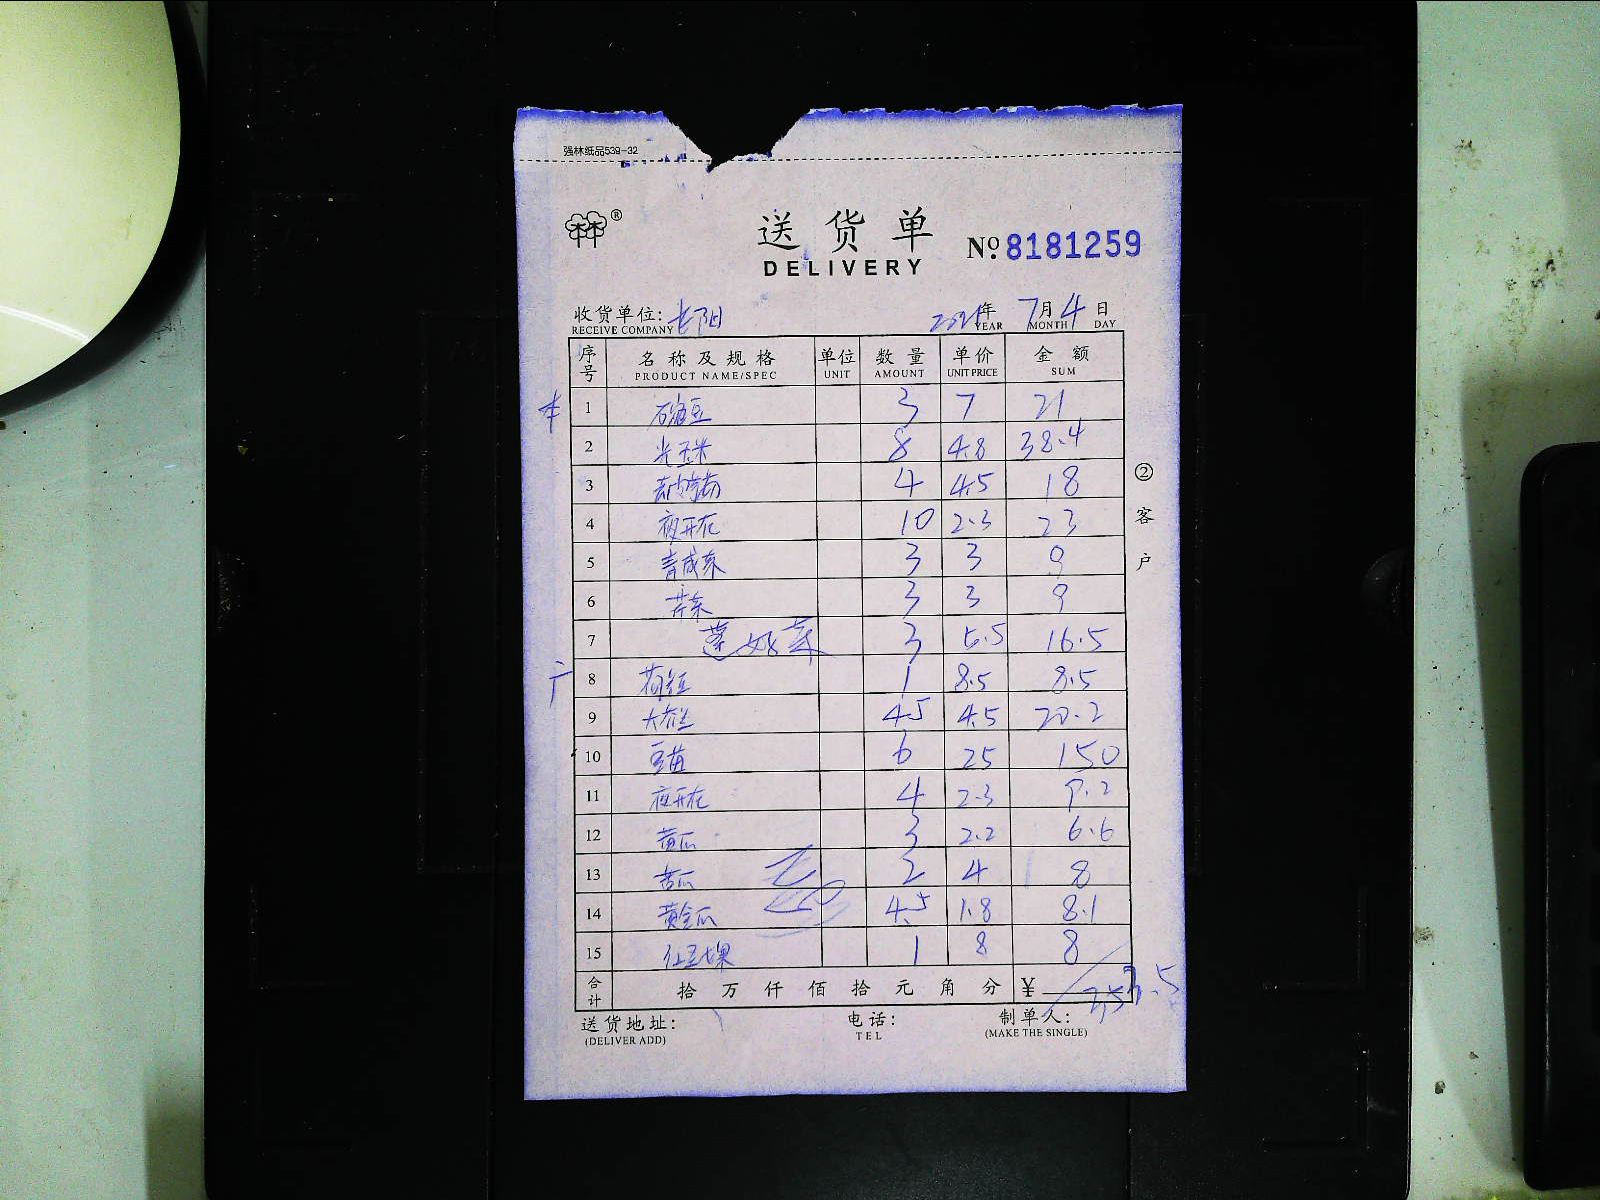 强林纸品539-32
®
送货单
DELIVERY
No. 8181259
收货单位: 长阳 2021年 7月 4日
RECEIVE COMPANY YEAR MONTH DAY
序号 名称及规格 单位 数量 单价 金额
PRODUCT NAME/SPEC UNIT AMOUNT UNIT PRICE SUM
本 1 3 7 21
2 光玉米 8 4.8 38.4
3 4 4.5 18
4 夜开花 10 2.3 23
5 3 3 9
6 芹菜 3 3 9
7 3 5.5 16.5
广 8 荷豆 1 8.5 8.5
9 4.5 4.5 20.2
10 豆苗 6 25 150
11 夜开花 4 2.3 9.2
12 黄瓜 3 2.2 6.6
13 苦瓜 2 4 8
14 黄金瓜 4.5 1.8 8.1
15 1 8 8
合计 拾万仟佰拾元角分 ¥
②客户
送货地址: 电话: 制单人:
(DELIVER ADD) TEL (MAKE THE SINGLE)